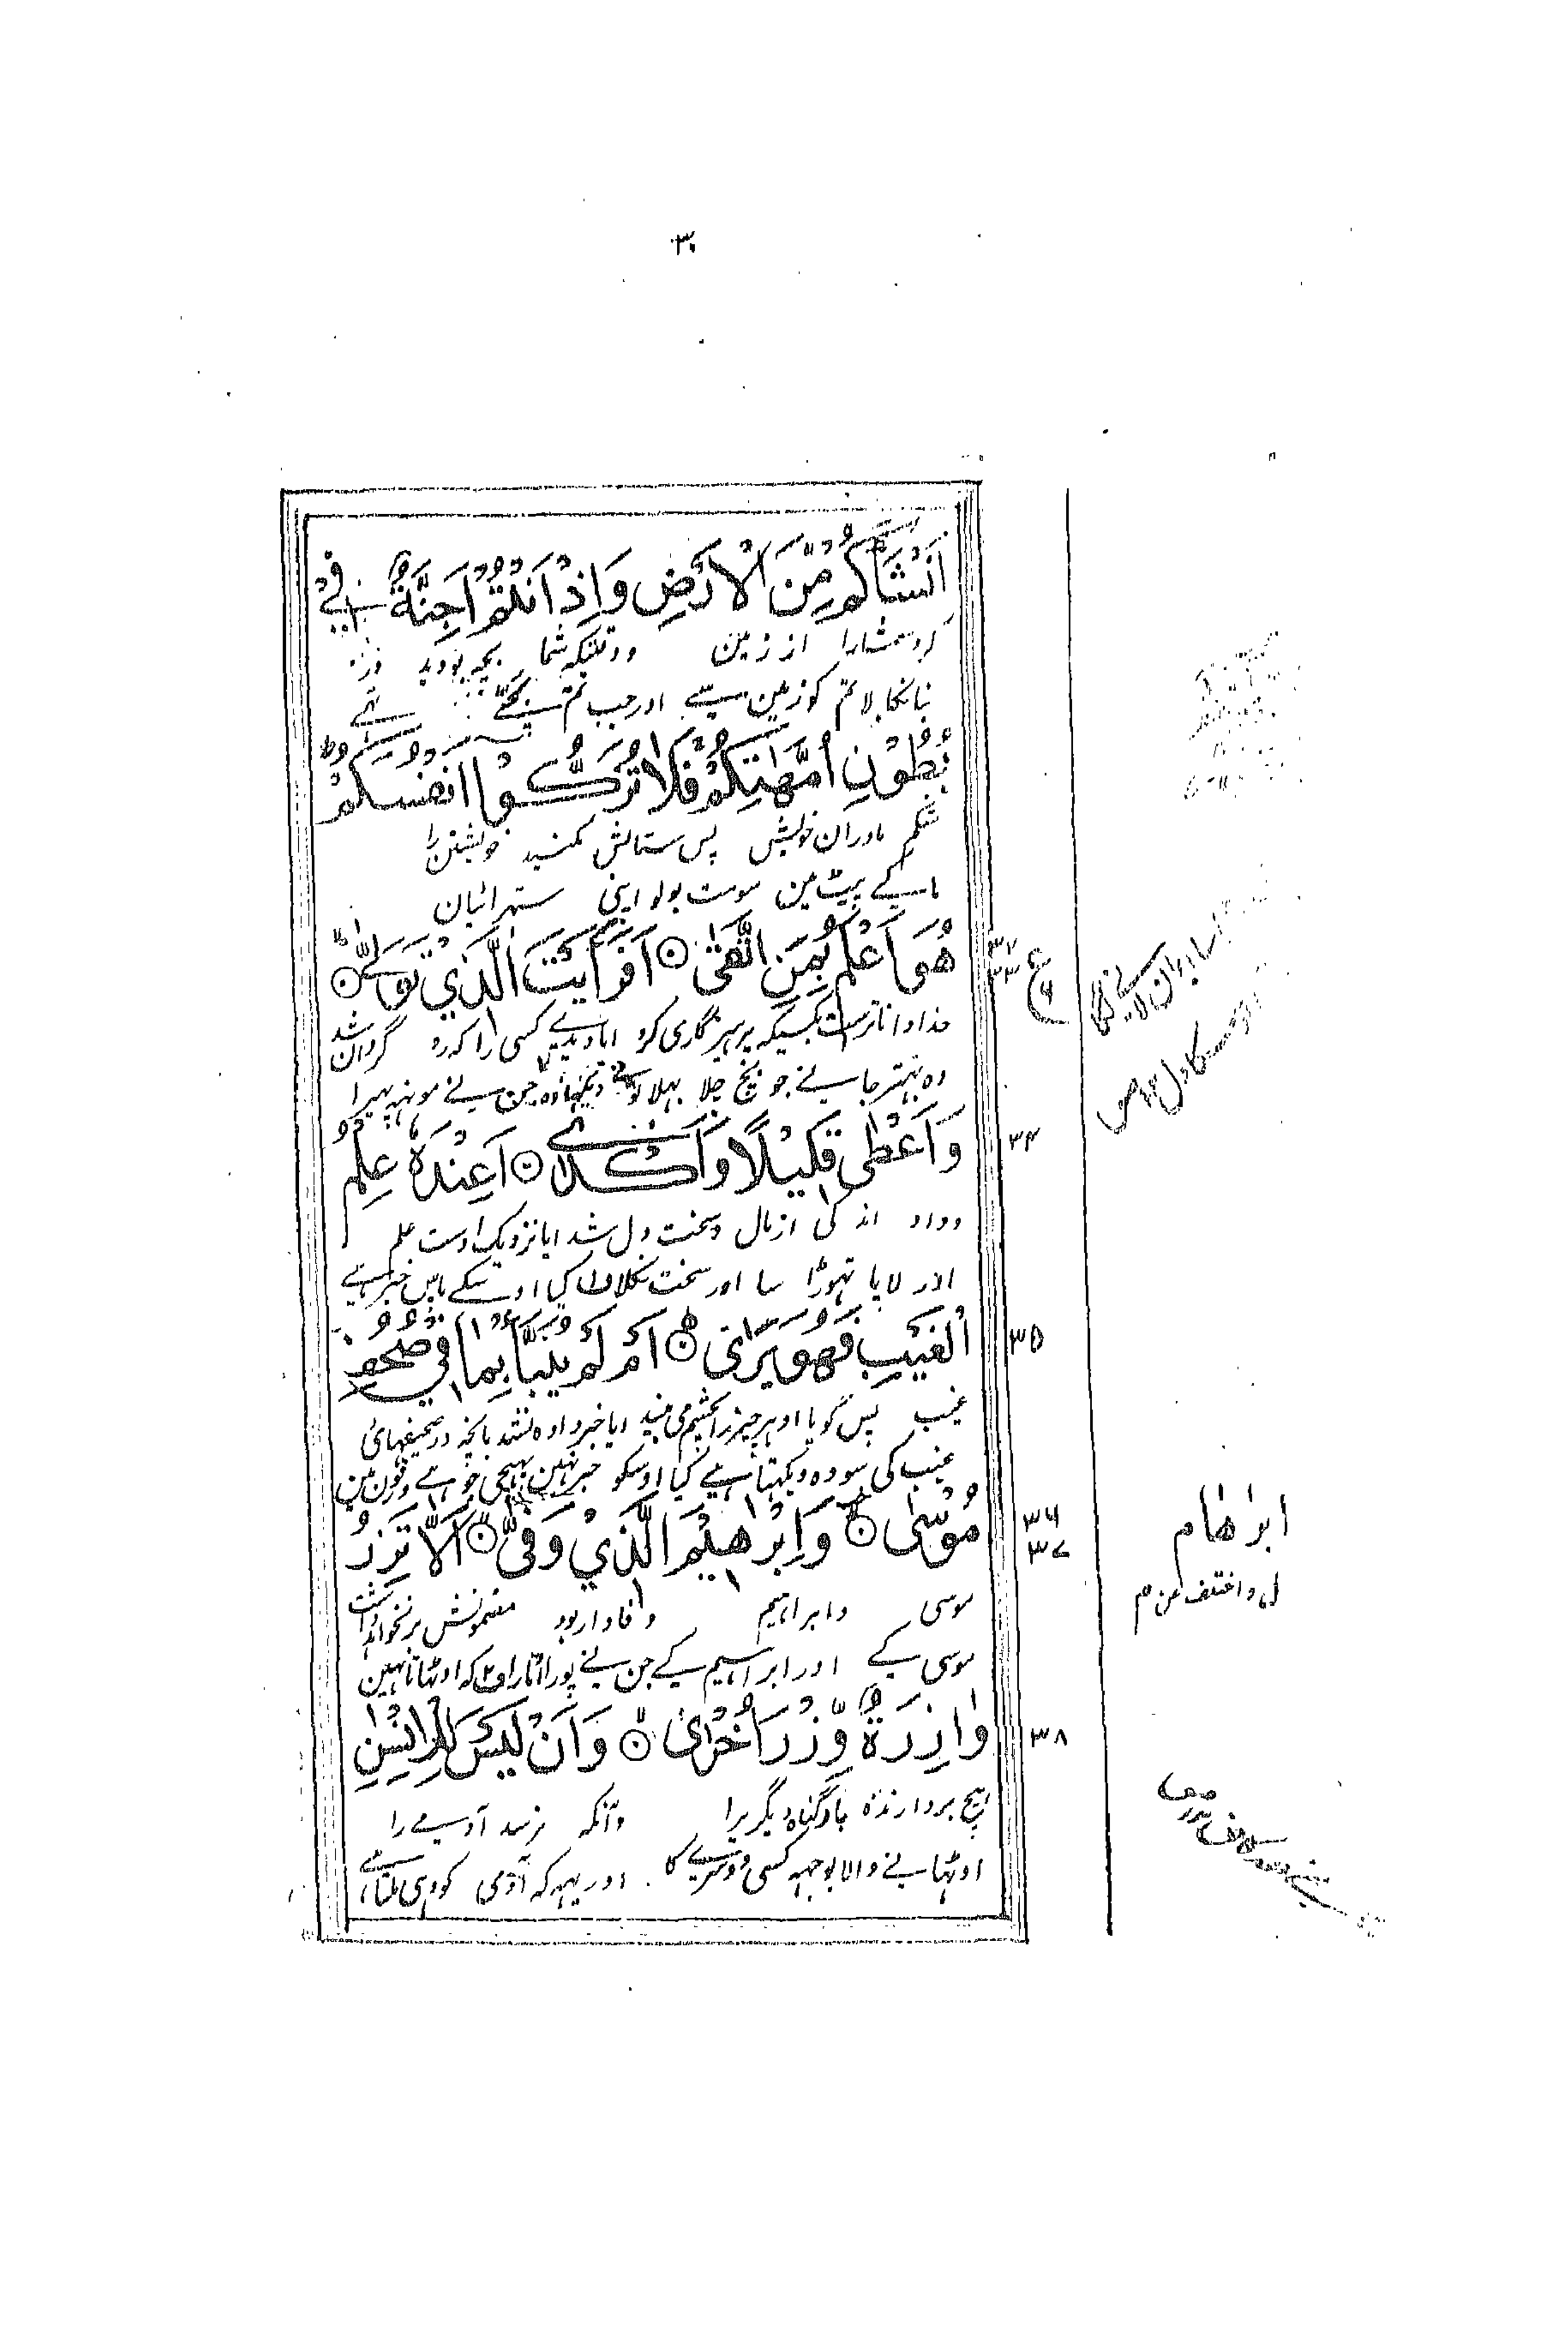 ۳۰
اَنْشَاَكُمْ مِّنَ الْاَرْضِ وَاِذْ اَنْتُمْ اَجِنَّةٌ فِيْ
کرد شمارا از زمین ووقتیکہ شما بچہ بودید در
بنا نکالا تم کو زمین سے اور جب تم بچے تہے
بُطُوْنِ اُمَّهٰتِكُمْ فَلَا تُزَكُّوْا اَنْفُسَكُمْ
شکم مادران خویش پس ستایش مکنید خویشتن را
ما کے پیٹ مین سو مت بولو اپنی ستہرائیان
هُوَ اَعْلَمُ بِمَنِ اتَّقٰى ۝ اَفَرَاَيْتَ الَّذِيْ تَوَلّٰى ۝
خدا داناترست بکسیکہ پرہیزگاری کرد ایا دیدی کسی را کہ رو گردان شد
وہ بہتر جانے جو بچ چلا بہلا تونے دیکہا وہ جن نے مونہہ پہیرا
وَاَعْطٰى قَلِيْلًا وَّاَكْدٰى ۝ اَعِنْدَهٗ عِلْمُ
وداد اندکی از مال وسخت دل شد ایا نزدیک اوست علم
اور لایا تہوڑا سا اور سخت نکلا کیا اوسکے پاس خبر ہے
الْغَيْبِ فَهُوَ يَرٰى ۝ اَمْ لَمْ يُنَبَّاْ بِمَا فِيْ صُحُفِ
غیب پس گویا او ہر چیز را بچشم می بیند ایا خبر دادہ نشد بانچہ در صحیفہای
غیب کی سو وہ دیکہتا ہے کیا اوسکو خبر نہین پہنچی جو ہے ورقون مین
مُوْسٰى ۝ وَاِبْرٰهِيْمَ الَّذِيْ وَفّٰى ۝ اَلَّا تَزِرُ
موسی وابراہیم وفادار بود مضمونش برنخواہد داشت
موسی کے اور ابراہیم کے جن نے پورا اتارا کہ اوٹہاتا نہین
وَازِرَةٌ وِّزْرَ اُخْرٰى ۝ وَاَنْ لَّيْسَ لِلْاِنْسٰنِ
ہیچ بردارندہ بار گناہ دیگریرا وآنکہ نرسد آدمی را
اوٹہانے والا بوجہہ کسی دوسرے کا اور یہہ کہ آدمی کو وہی ملتا ہے
۳۲
۳۳
ع
۳۴
۳۵
۳۶
۳۷
۳۸
ابراهام
ل واختلف عن م